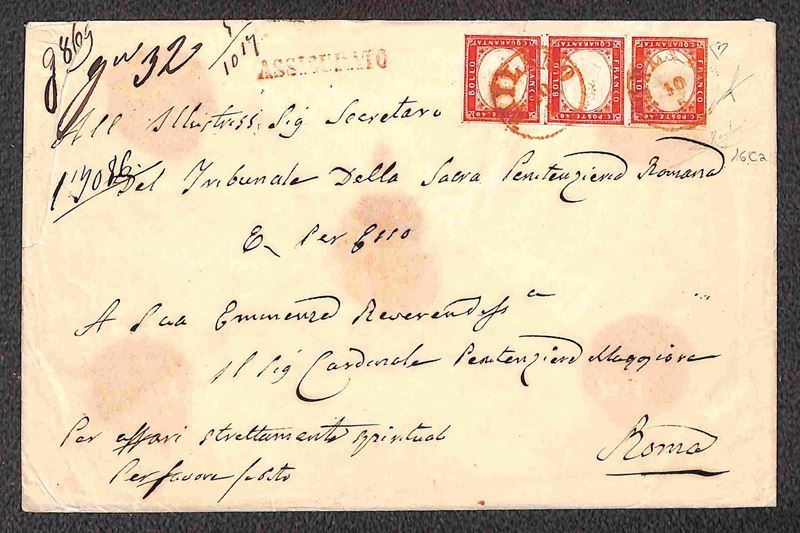 9869
gr 32
1/1017
ASSICURATO
C. QUARANTA C. QUARANTA C. QUARANTA
BOLLO FRANCO BOLLO FRANCO BOLLO FRANCO
C. POSTE 40 C. POSTE 40 C. POSTE 40
10
16Ca
All Illustriss Sig Secretaro
Del Tribunale Della Sacra Penitenziera Romana
E Per Esso
A Sua Eminenza Reverendss a
Il Sig Cardinale Penitenziere Maggiore
Per affari strettamente spirituali
Roma
Per favore